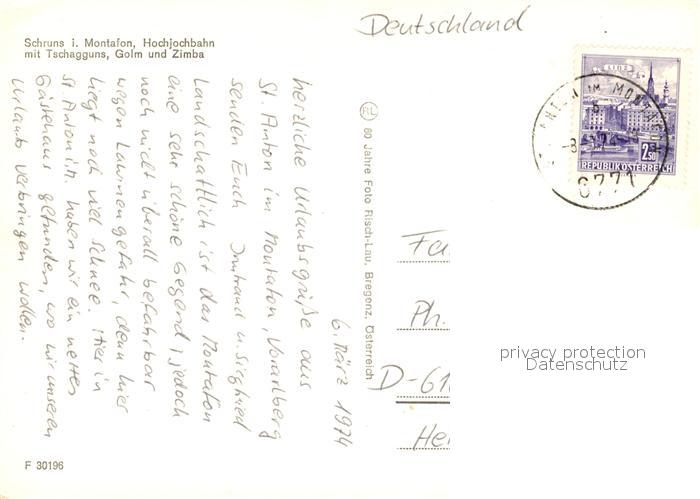 Deutschland
Schruns i. Montafon, Hochjochbahn
mit Tschagguns, Golm und Zimba
LINZ
2.50
REPUBLIK ÖSTERREICH
IM MONTAFON
6771
60 Jahre Foto Risch-Lau, Bregenz, Österreich
6. März 1974
herzliche Urlaubsgrüße aus
St. Anton im Montafon, Vorarlberg
senden Euch Irmtraud u. Siegfried
Landschaftlich ist das Montafon
eine sehr schöne Gegend, jedoch
noch nicht überall befahrbar
wegen Lawinengefahr, denn hier
liegt noch viel Schnee. Hier in
St. Anton i.M. haben wir ein nettes
Gästehaus gefunden, wo wir unseren
Urlaub verbringen wollen.
Fa
Ph.
D-61
He
privacy protection
Datenschutz
F 30196